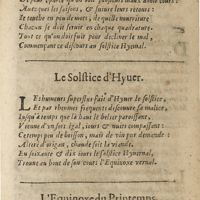 Auecques les saisons, & future leurs retours :
Ie touche en peu de mots, de quelle nourriture
Chacun se doit seruir en chaque quadrature.
Tout ce qu'on doit suiure pour decliner le mal,
Commençant ce discours au solstice Hyemal.
Le Solstice d'Hyuer.
LEs humeurs superflus fait d'Hyuer le solstice,
Et par rheumes frequents descouure sa malice,
Iusqu'à temps que le haut le belier paroissant,
Vienne d'un sort égal, iours & nuits compassant :
Ce temps peu de boisson, mais de vin pur demande :
Altere d'origan, chaude soit la viande.
En soixante & dix iours le solstice Hyuernal,
Trouue au bout de son cours l'Equinoxe vernal.
L'Equinoxe du Printemps.